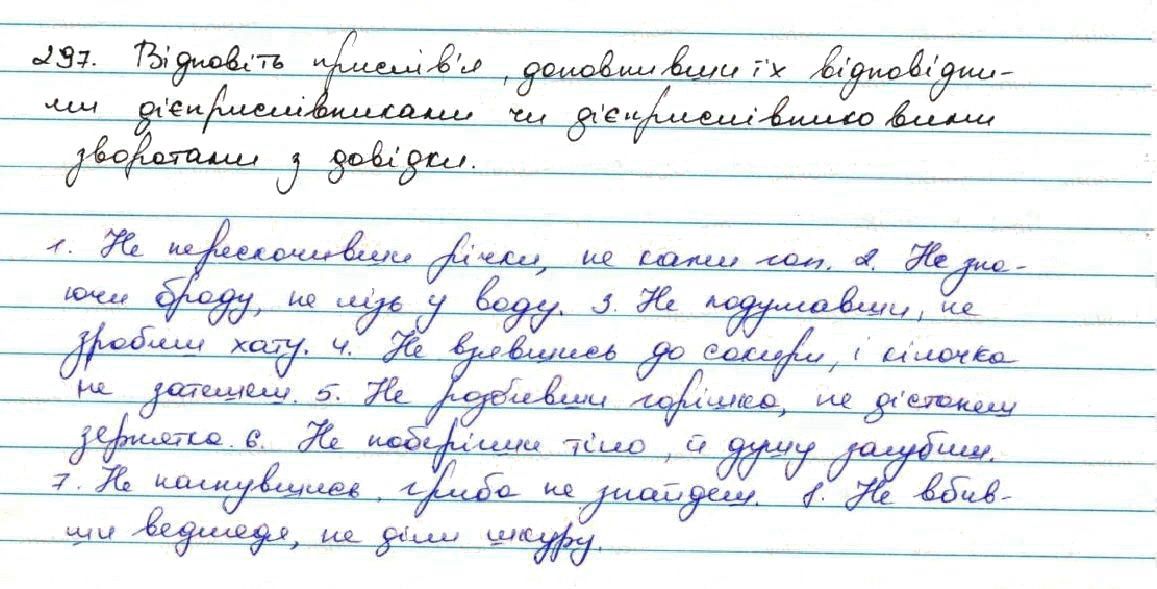 297. Відновіть прислів'я, доповнивши їх відповідни-
ми дієприслівниками чи дієприслівниковими
зворотами з довідки.
1. Не перескочивши річки, не кажи гоп. 2. Не зна-
ючи броду, не лізь у воду. 3. Не подумавши, не
зробиш хату. 4. Не взявшись до сокири, і кілочка
не затешеш. 5. Не розбивши горішка, не дістанеш
зернятка. 6. Не поберігши тіло, й душу загубиш.
7. Не нагнувшись, гриба не знайдеш. 8. Не вбив-
ши ведмедя, не діли шкуру.